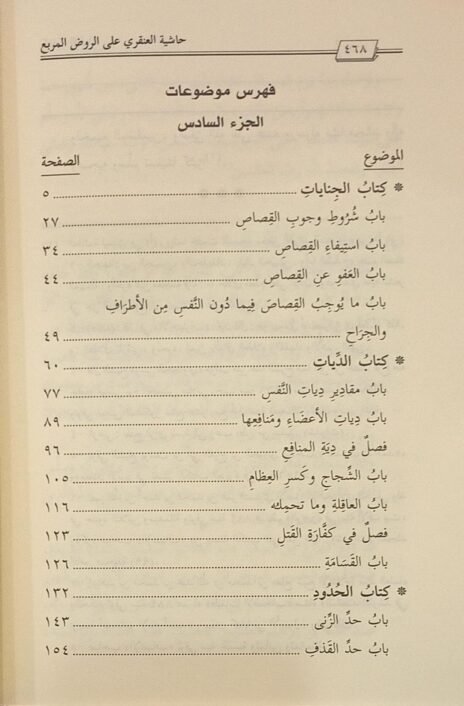 حاشية العنقري على الروض المربع
٤٦٨
فهرس موضوعات
الجزء السادس
الموضوع الصفحة
* كِتابُ الجِناياتِ ٥
بابُ شُرُوطِ وجوبِ القِصاصِ ٢٧
بابُ استِيفاءِ القِصاصِ ٣٤
بابُ العَفوِ عنِ القِصاصِ ٤٤
بابُ ما يُوجِبُ القِصاصَ فِيما دُون النَّفسِ مِن الأطرَافِ
والجِرَاحِ ٤٩
* كِتابُ الدِّياتِ ٦٠
بابُ مقادِيرِ دِياتِ النَّفسِ ٧٧
بابُ دِياتِ الأعضَاءِ ومَنافِعِها ٨٩
فصلٌ في دِيَةِ المنافِعِ ٩٦
بابُ الشِّجاجِ وكَسرِ العِظامِ ١٠٥
بابُ العاقِلةِ وما تحمِله ١١٦
فصلٌ في كفَّارَةِ القَتلِ ١٢٣
بابُ القَسَامَةِ ١٢٦
* كِتابُ الحُدُودِ ١٣٢
بابُ حدِّ الزِّنى ١٤٣
بابُ حدِّ القَذفِ ١٥٤